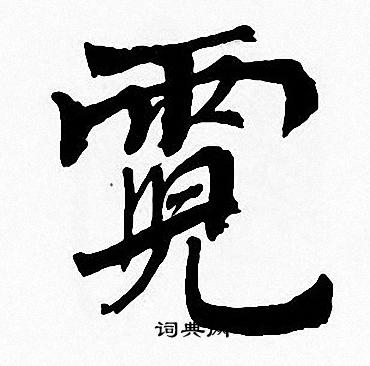 霓
词典网